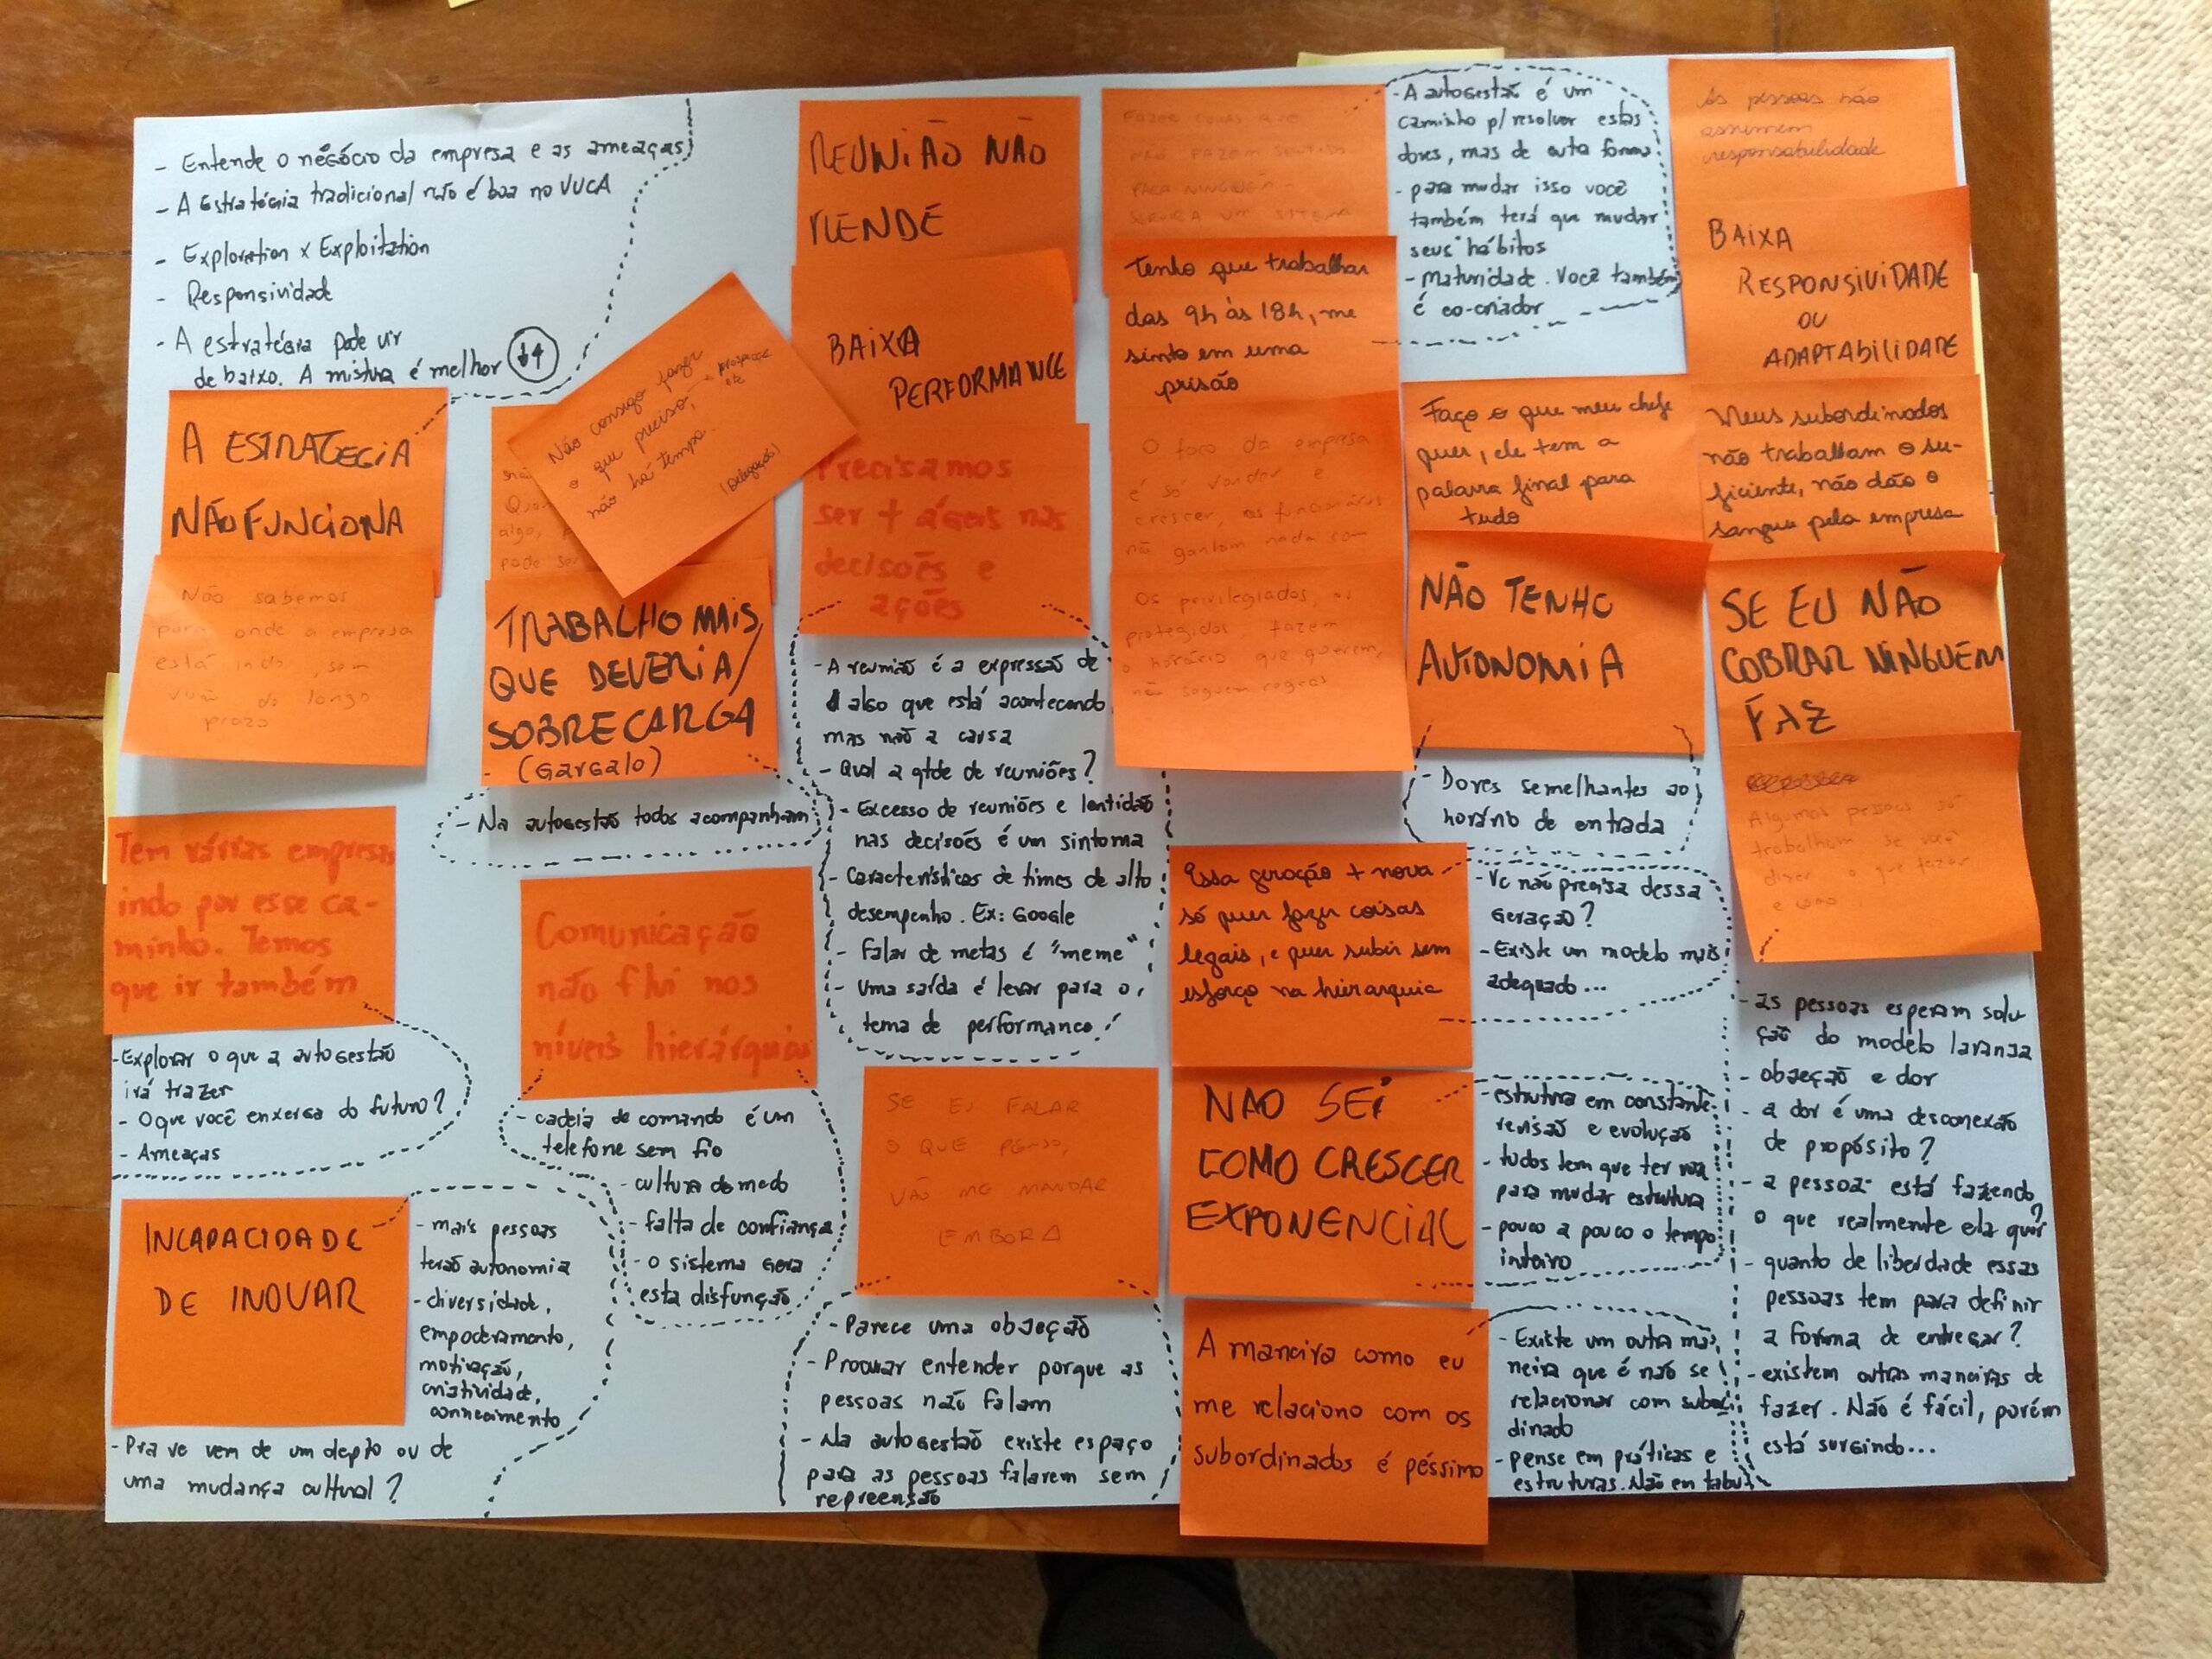 - Entende o negócio da empresa e as ameaças
- A Estratégia tradicional não é boa no VUCA
- Exploration x Exploitation
- Responsividade
- A estratégia pode vir
de baixo. A mistura é melhor
A ESTRATEGIA
NÃO FUNCIONA
Não sabemos
para onde a empresa
está indo, sem
visão de longo
prazo
Tem várias empresas
indo por esse ca-
minho. Temos
que ir também
- Explorar o que a autogestão
irá trazer
- O que você enxerga do futuro?
- Ameaças
INCAPACIDADE
DE INOVAR
- mais pessoas
terão autonomia
- diversidade,
empoderamento,
motivação,
criatividade,
conhecimento
- Pra vc vem de um depto ou de
uma mudança cultural?
Não consigo fazer
o que preciso,
não há tempo.
(Delegação)
algo,
pode ser
TRABALHO MAIS
QUE DEVERIA/
SOBRECARGA
(Gargalo)
- Na autogestão todos acompanham
Comunicação
não flui nos
níveis hierárquicos
- cadeia de comando é um
telefone sem fio
- cultura do medo
- falta de confiança
- o sistema gera
esta disfunção
REUNIÃO NÃO
RENDE
BAIXA
PERFORMANCE
Precisamos
ser + ágeis nas
decisões e
ações
- A reunião é a expressão de
algo que está acontecendo
mas não a causa
- Qual a qtde de reuniões?
- Excesso de reuniões e lentidão
nas decisões é um sintoma
- Características de times de alto
desempenho. Ex: Google
- Falar de metas é "meme"
- Uma saída é levar para o
tema de performance!
SE EU FALAR
O QUE PENSO,
VÃO ME MANDAR
EMBORA
- Parece uma objeção
- Procurar entender porque as
pessoas não falam
- Na autogestão existe espaço
para as pessoas falarem sem
repreensão
FAZER COISAS QUE
NÃO FAZEM SENTIDO
PARA NINGUÉM -
UM SISTEMA
Tenho que trabalhar
das 9h às 18h, me
sinto em uma
prisão
O foco da empresa
é só vender e
crescer os funcionários
não ganham nada com
Os privilegiados, os
protegidos fazem
o horário que querem,
não seguem regras
- A autogestão é um
caminho p/ resolver estas
dores, mas de outa forma
- para mudar isso você
também terá que mudar
seus hábitos
- Maturidade. Você também
é co-criador
Faço o que meu chefe
quer, ele tem a
palavra final para
tudo
NÃO TENHO
AUTONOMIA
- Dores semelhantes ao
horário de entrada
Essa geração + nova
só quer fazer coisas
legais, e quer subir sem
esforço na hierarquia
- Vc não precisa dessa
Geração?
- Existe um modelo mais
adequado...
NAO SEI
COMO CRESCER
EXPONENCIAL
- estrutura em constante
revisão e evolução
- todos tem que ter voz
para mudar estrutura
- pouco a pouco o tempo
inteiro
A maneira como eu
me relaciono com os
subordinados é péssimo
- Existe um outra ma
neira que é não se
relacionar com subor
dinado
- pense em práticas e
estruturas. Não em
As pessoas não
assumem
responsabilidade
BAIXA
RESPONSIVIDADE
OU
ADAPTABILIDADE
Meus subordinados
não trabalham o su-
ficiente, não dão o
sangue pela empresa
SE EU NÃO
COBRAR NINGUEM
FAZ
Algumas pessoas só
trabalham se você
disser o que fazer
e como
- as pessoas esperam solu
ção do modelo laranja
- objeção e dor
- a dor é uma desconexão
de propósito?
- a pessoa está fazendo
o que realmente ela quer?
- quanto de liberdade essas
pessoas tem para definir
a forma de entregar?
- existem outras maneiras de
fazer. Não é fácil, porém
está surgindo...